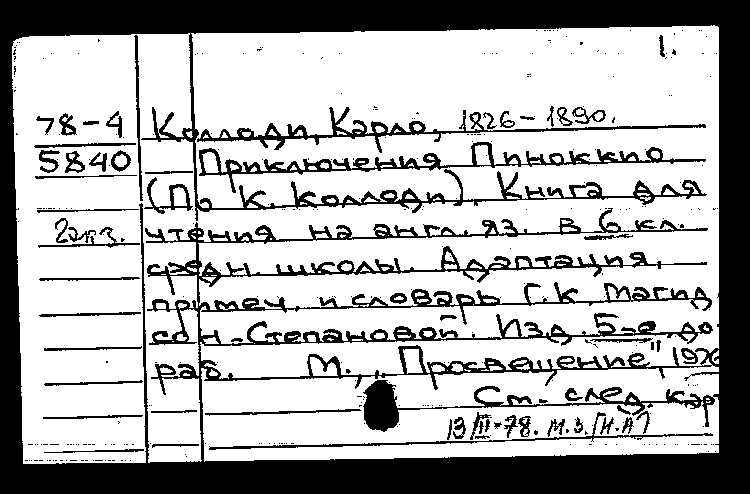 1.
78-4 Коллоди, Карло, 1826-1890.
5840 Приключения Пиноккио.
(По К. Коллоди). Книга для
2экз. чтения на англ. яз. в 6 кл.
средн. школы. Адаптация,
примеч. и словарь Г.К. Магид
сон-Степановой. Изд. 5-е, до
раб. М., „Просвещение", 1976
См. след. карт
13/III-78. М.З. [Н.А]